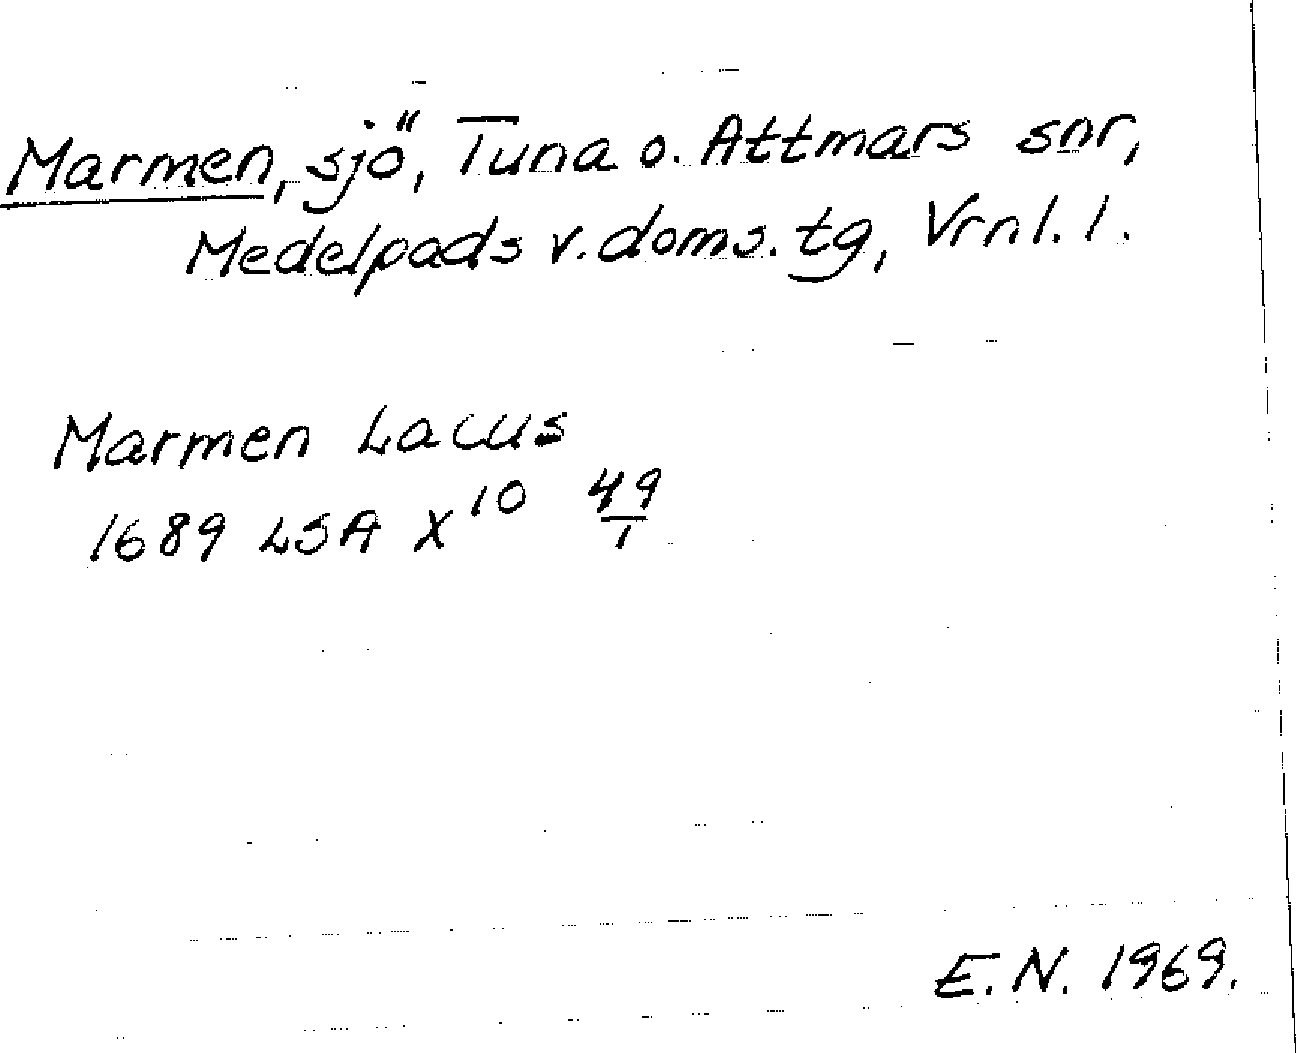 Marmen, sjö, Tuna o. Attmars snr,
Medelpads v. doms. tg, Vrnl. l.
Marmen Lacus
1689 LSA X¹⁰ 49/1
E.N. 1969.